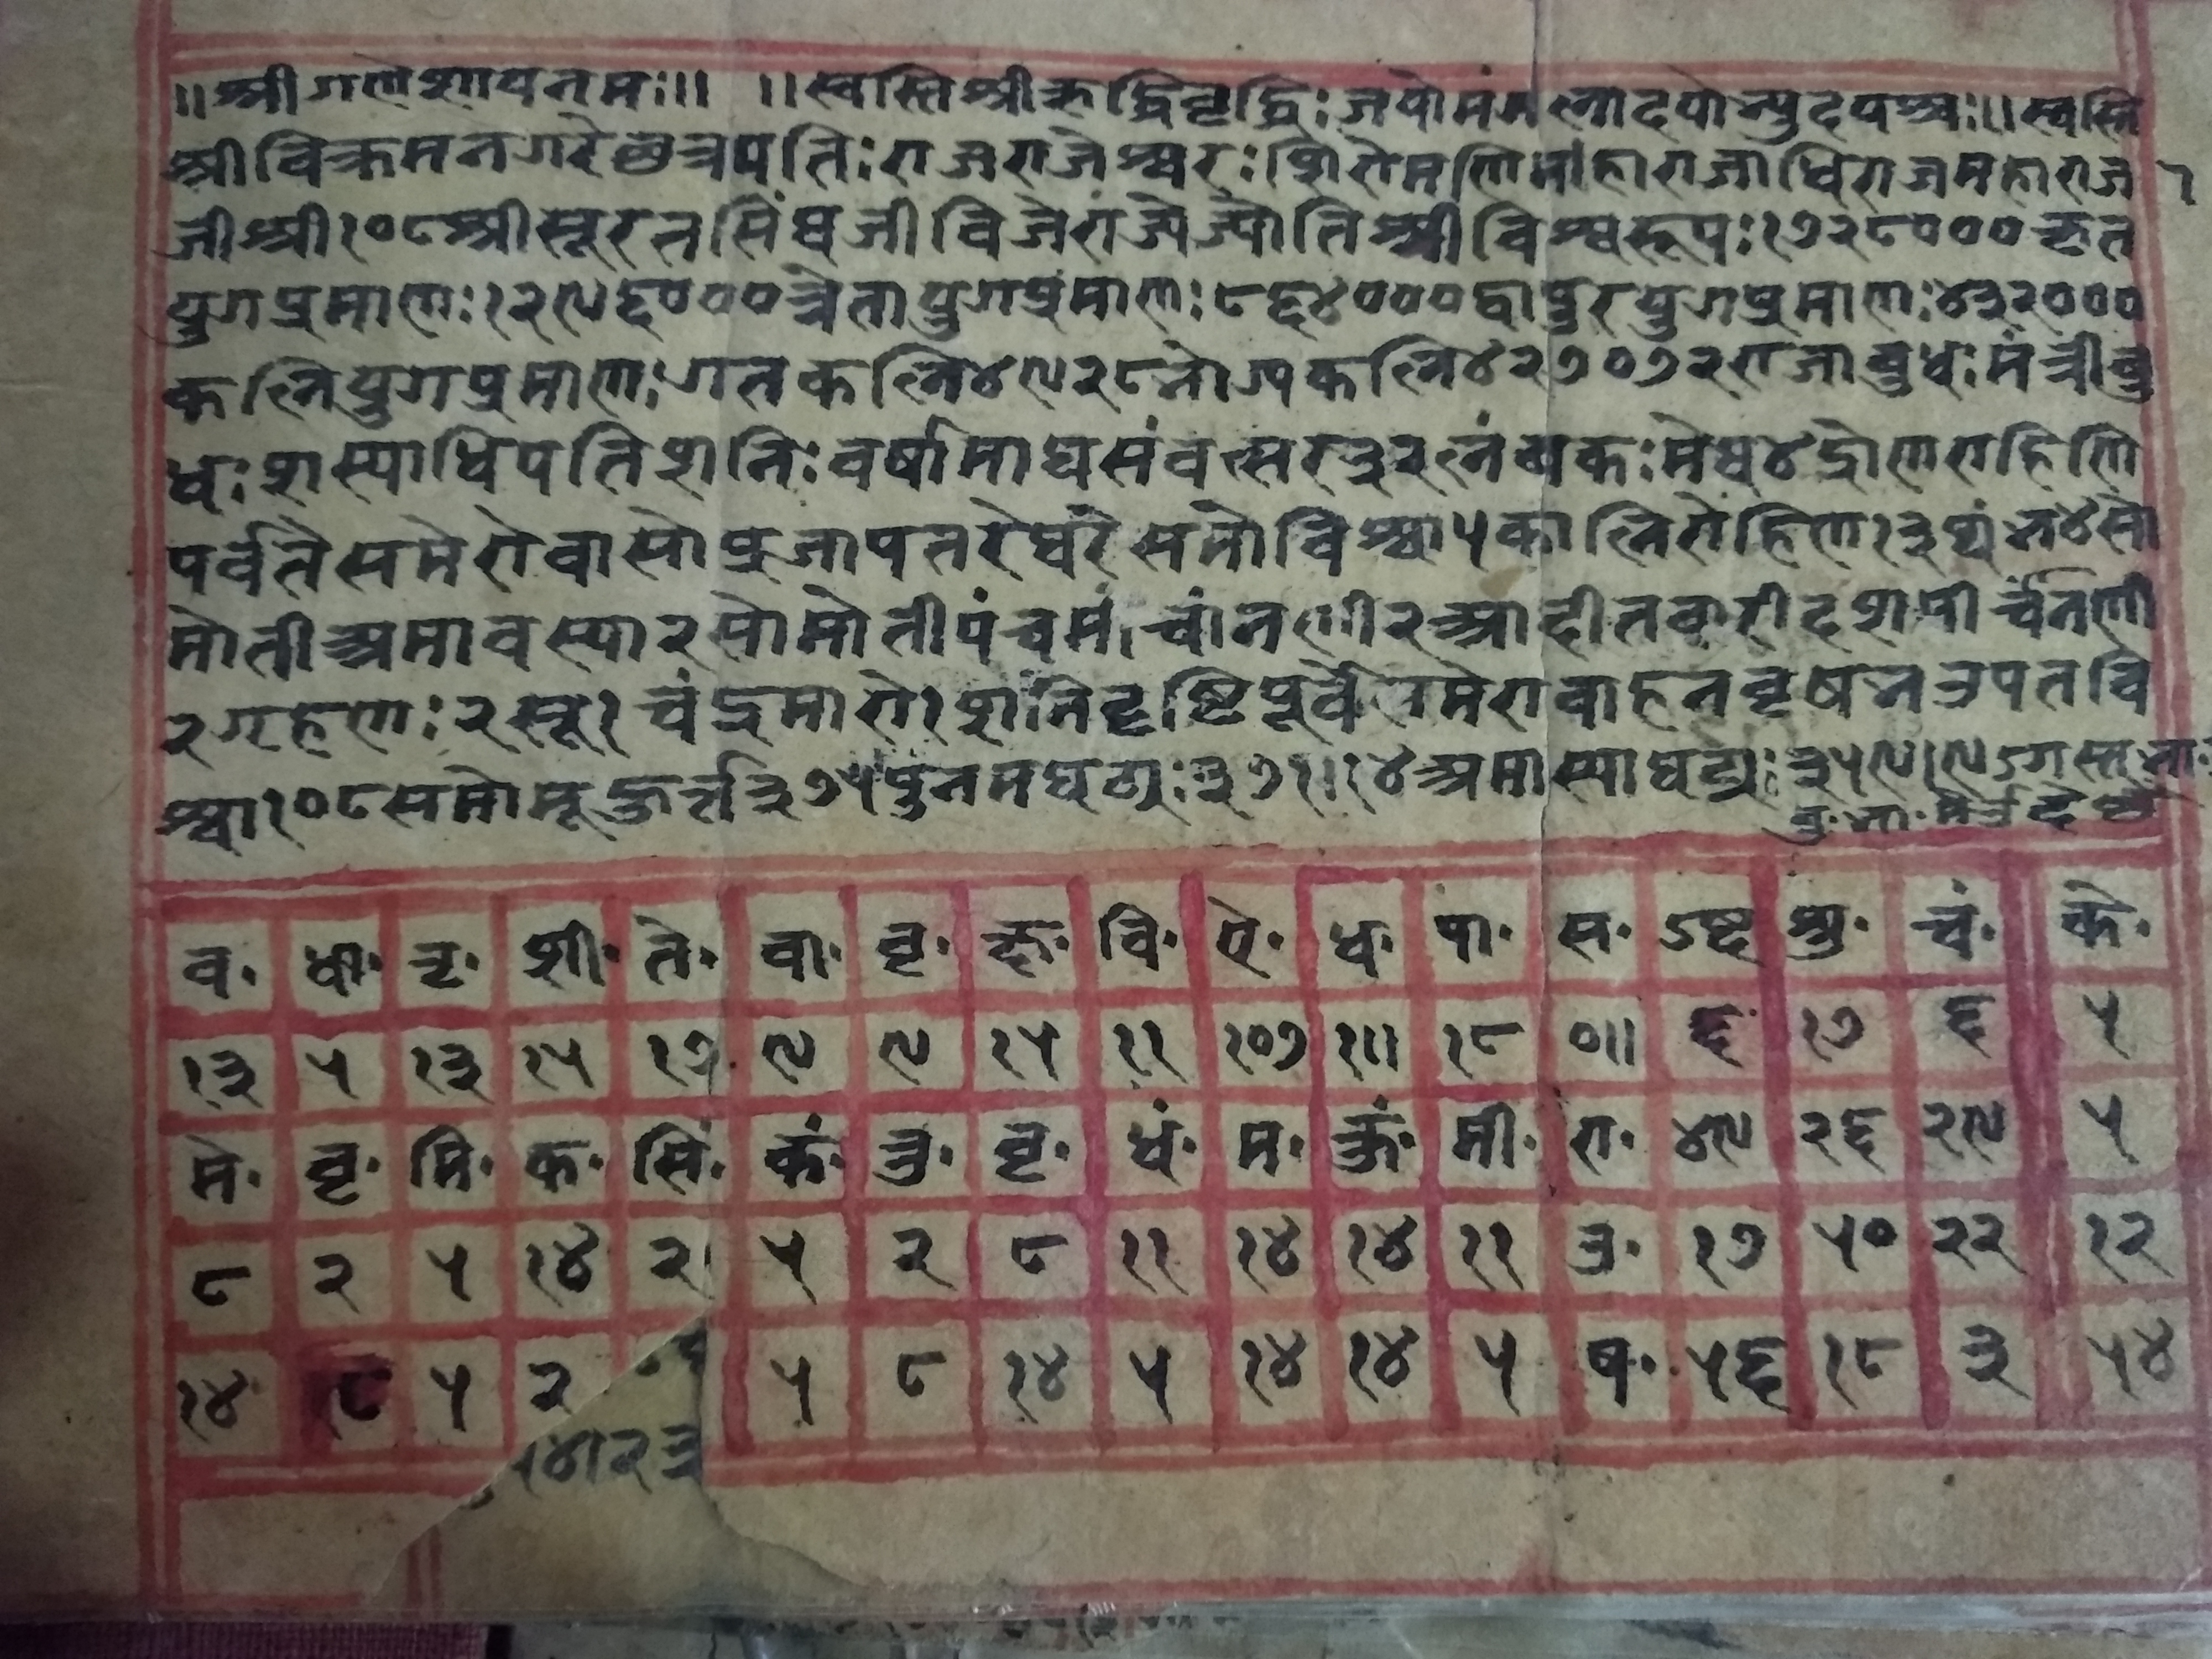 ॥श्रीगणेशायनमः॥ ॥स्वस्तिश्रीऋद्धिवृद्धिः जयोमंगलादयोन्युदयश्चः॥स्वस्ति
श्रीविक्रमनगरेछत्रपतिः राजराजेश्वरः शिरोमणिमांहाराजाधिराजमहाराज
जीश्री१०८श्रीसूरतसिंघजीविजेराज्येज्योतिश्रीविश्वरूपः १७२८०००कृत
युगप्रमाणः १२९६०००त्रेतायुगप्रमाणः ८६४०००द्वापुरयुगप्रमाणः ४३२०००
कलियुगप्रमाणः गतकलि४९२८भोग्यकलि४२७०७२राजाबुधः मंत्रीबु
धः शस्याधिपतिशनिः वर्षामाघसंवत्सर३२लंबकः मेघ४द्रोणराहिणि
पर्वतेसमेरोवासोप्रजापतरेघरेसमोविश्वा५कालिरोहिण१३
मोतीअमावस्या२सोमोतीपंचमं चांनणी२आदीतवारीदशमीचांनणी
२गहणः २सू१ चंद्रमारो१शनिदृष्टिपूर्वेसमेरावाहनवृष
श्वा१०८समोमूहुर्त्त३७५पुनमघट्यः ३७१।१४अमास्याघट्यः ३५९।९
व· धा· तृ· शी· ते· वा· वृ· क्ष· वि· ऐ· ध· पा· स· ऽष्ट शु· चं· के·
१३ ५ १३ १५ १७ ९ ९ १५ ११ १०७ १॥ १८ ०॥ ६ १७ ६ ५
मे· वृ· मि· क· सिं· कं· तु· वृ· धं· म· कुं· मी· रा· ४९ २६ २९ ५
८ २ ५ १४ २ ५ २ ८ ११ १४ १४ ११ १७ ५० २२ १२
१४ ८ ५ २ ५ ८ १४ ५ १४ १४ ५ ५६ १८ ३ ५४